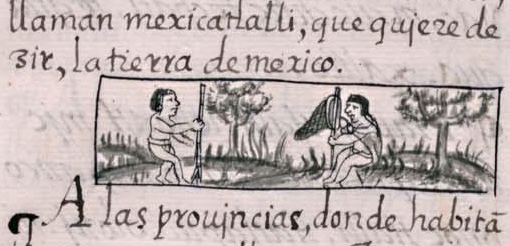 llaman mexicatlalli, que qujere de
zir, la tierra de mexico.
A las proujncias, donde habitā